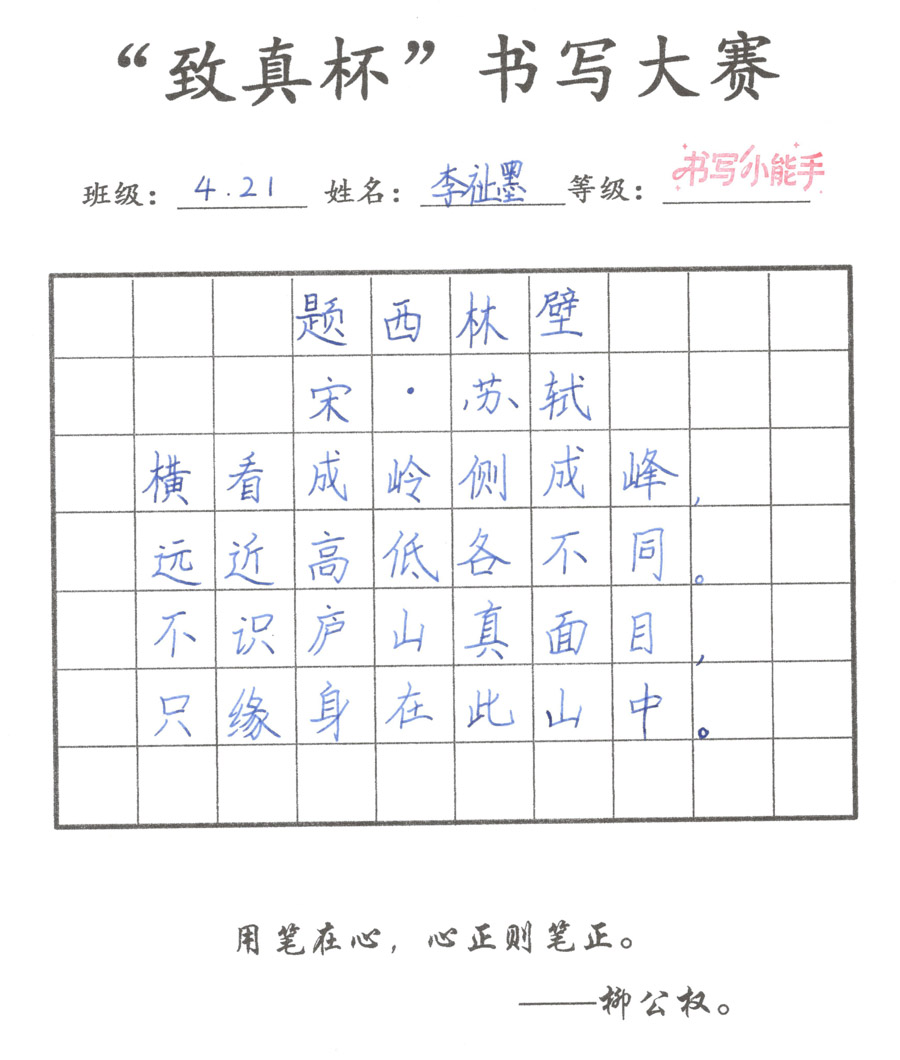 “致真杯”书写大赛
班级：4.21 姓名：李祉墨 等级：书写小能手
题西林壁
宋·苏轼
横看成岭侧成峰，
远近高低各不同。
不识庐山真面目，
只缘身在此山中。
用笔在心，心正则笔正。
——柳公权。